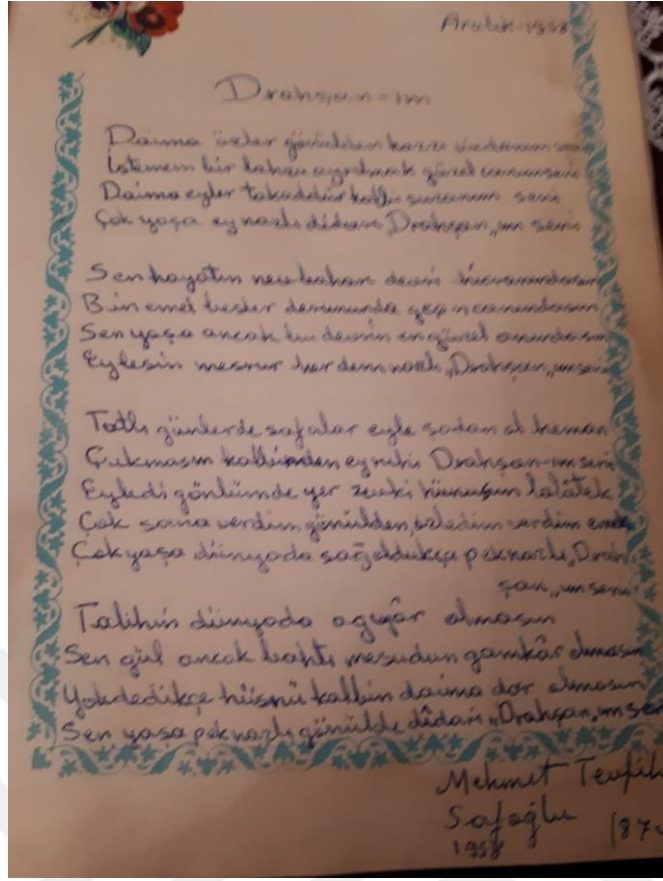 Aralık-1998
Drahşan-ım
Daima özler gönülden seni
İstemem bir lahza ayrılmak güzel seni
Daima eyler takaddür kalbi suzanım seni
Çok yaşa ey nazlı dîdarı „Drahşan„ım seni
Sen hayatın nev bahar devri
Bin emel besler derununda
Sen yaşa ancak bu devrin en güzel anındasın
Eylesin mesrur her dem nazlı „Drahşan„ım seni
Tatlı günlerde safalar eyle şadan ol heman
Çıkmasın kalbimden ey ruhi Drahşan-ım seni
Eyledi gönlümde yer zevki
Çok sana verdim gönülden, özledim verdim emek
Çok yaşa dünyada sağ oldukça pek nazlı „Drah
şan„ım seni
Talihin dünyada agyâr olmasın
Sen gül ancak bahtı mesudun gamkâr olmasın
Yokdedikçe hüsnü kalbin daima dar olmasın
Sen yaşa pek nazlı gönülde dîdarı „Drahşan„ım seni
Mehmet Tevfik
Safoğlu
1998 (87